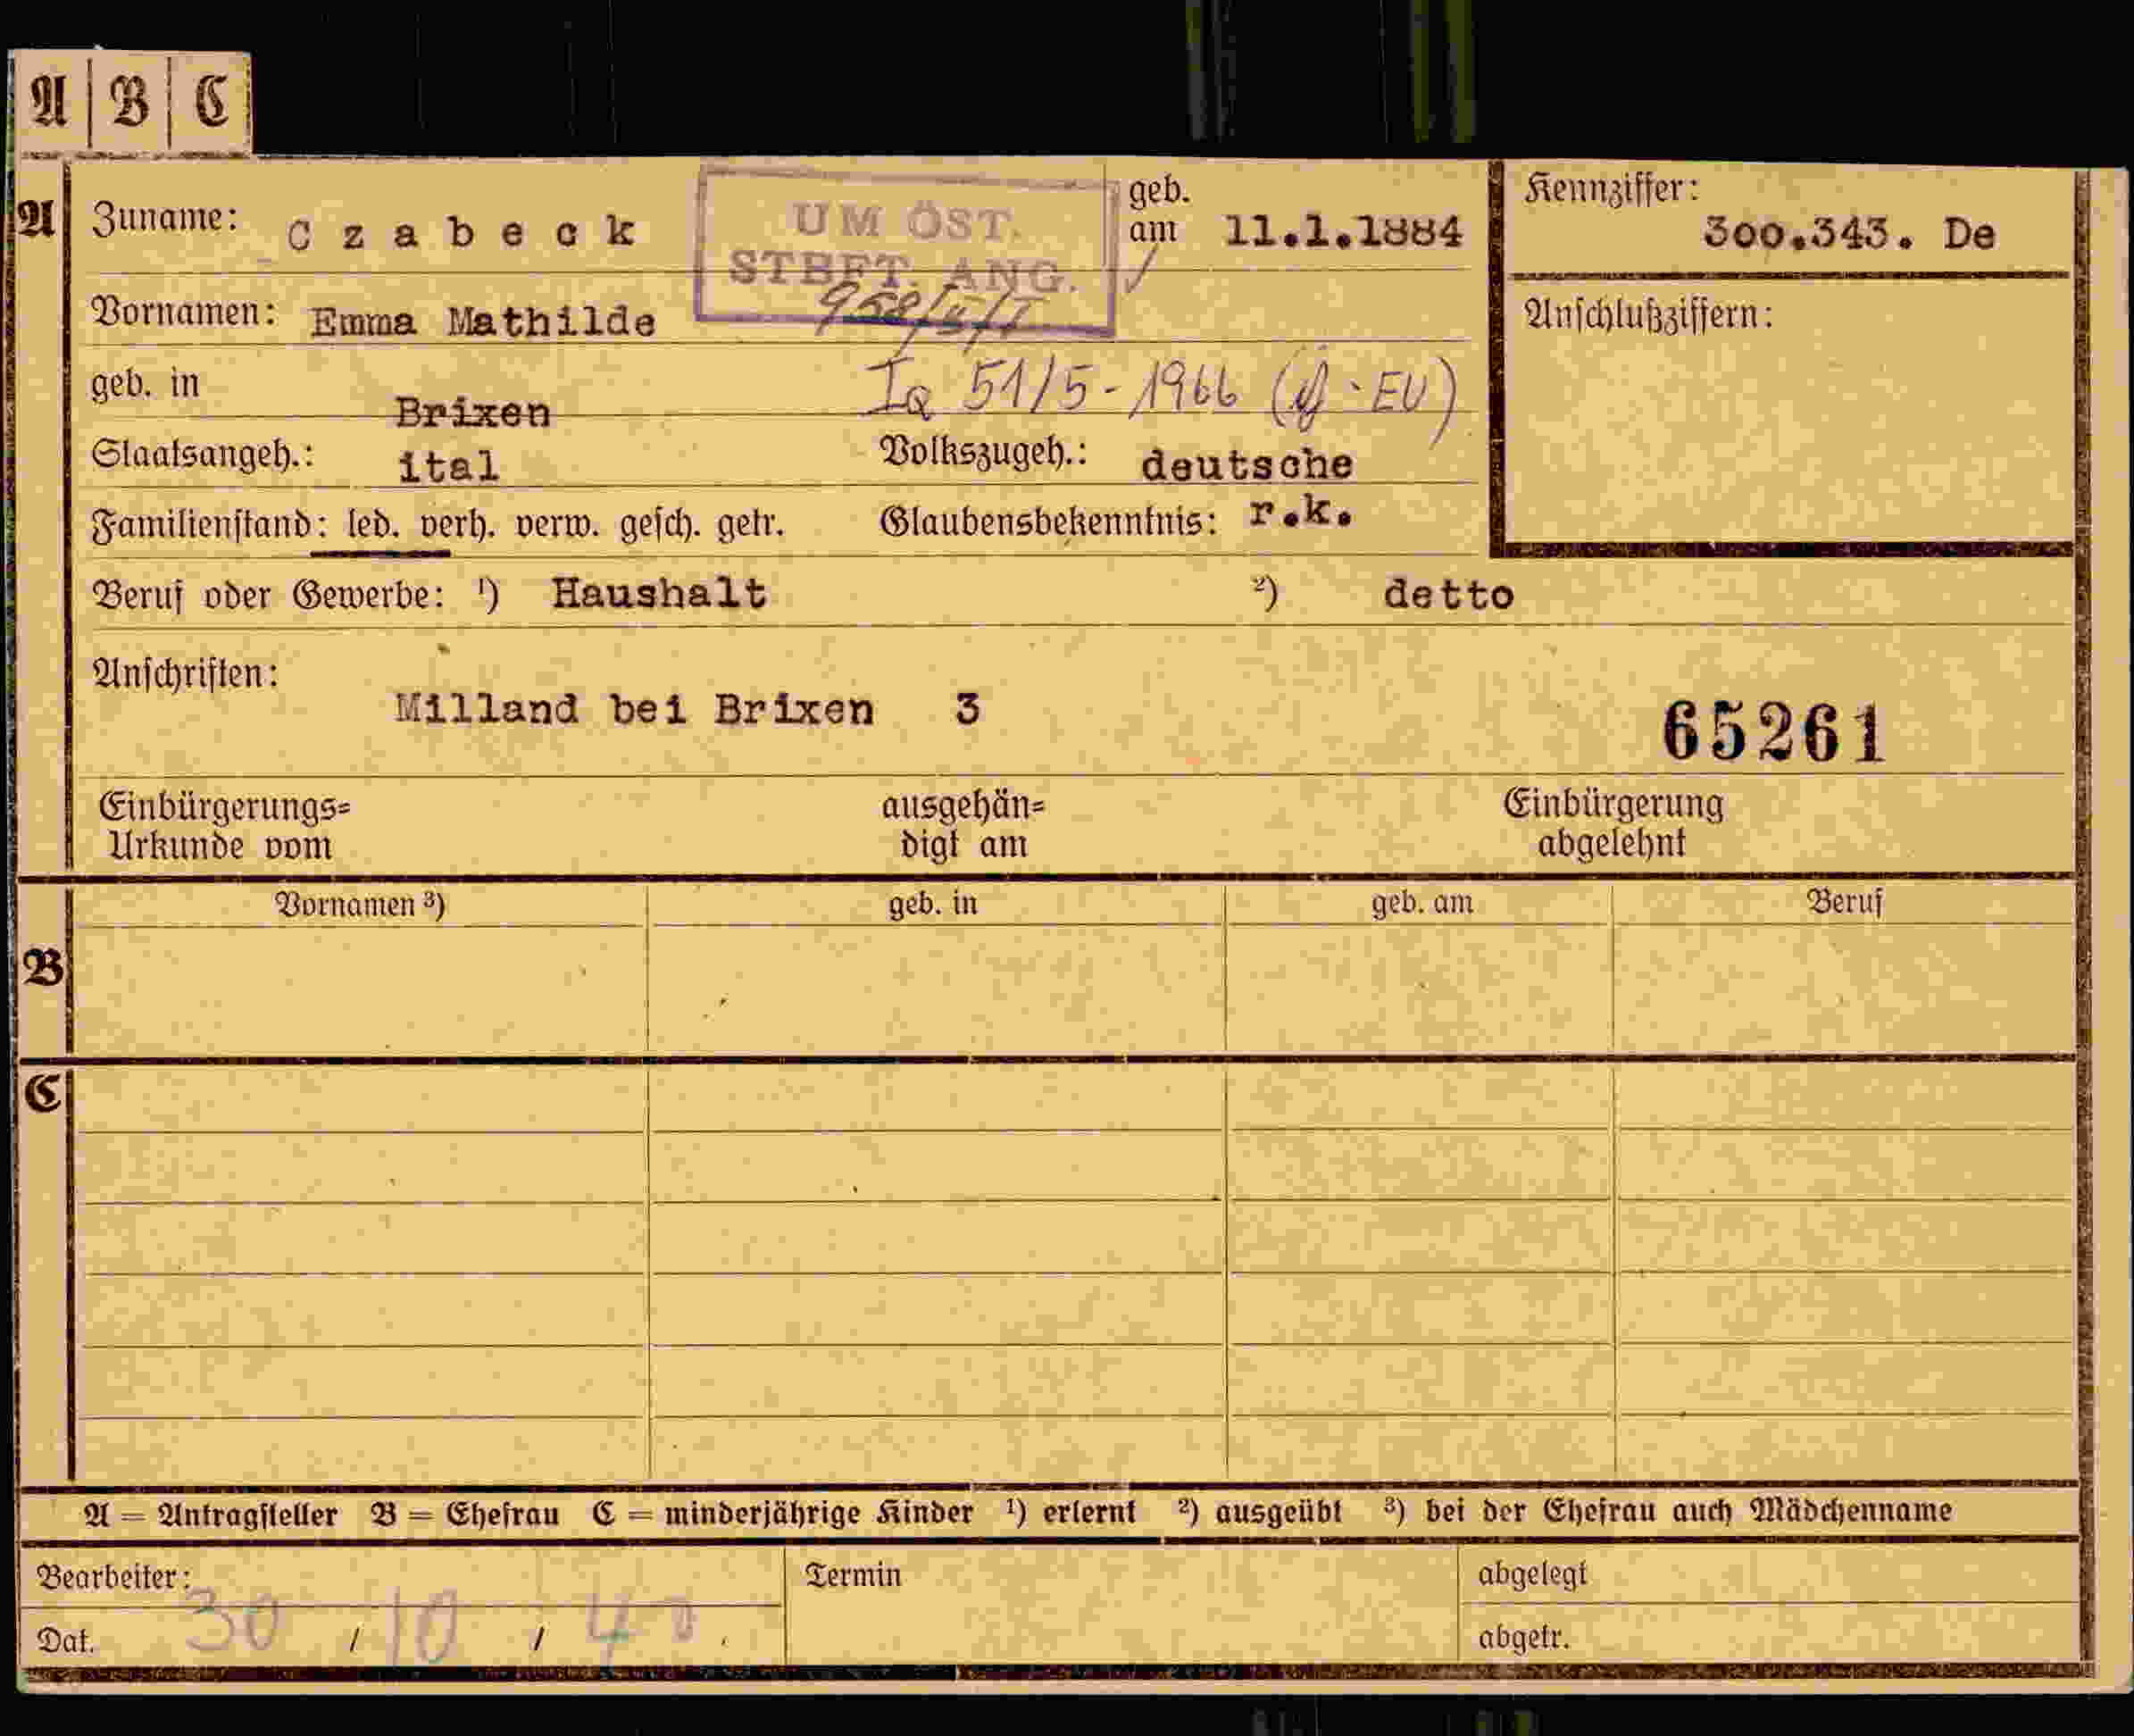 A B C
A Zuname: C z a b e c k geb. am 11.1.1884 Kennziffer: 300.343. De
UM ÖST.
STBFT. ANG.
Vornamen: Emma Mathilde Anschlußziffern:
geb. in Brixen Ia 51/5-1966
Staatsangeh.: ital Volkszugeh.: deutsche
Familienstand: led. verh. verw. gesch. getr. Glaubensbekenntnis: r.k.
Beruf oder Gewerbe: ¹) Haushalt ²) detto
Anschriften:
Milland bei Brixen 3 65261
Einbürgerungs= ausgehän= Einbürgerung
Urkunde vom digt am abgelehnt
Vornamen ³) geb. in geb. am Beruf
B
C
A = Antragsteller B = Ehefrau C = minderjährige Kinder ¹) erlernt ²) ausgeübt ³) bei der Ehefrau auch Mädchenname
Bearbeiter: Termin abgelegt
Dat. 30 / 10 / 40 abgetr.